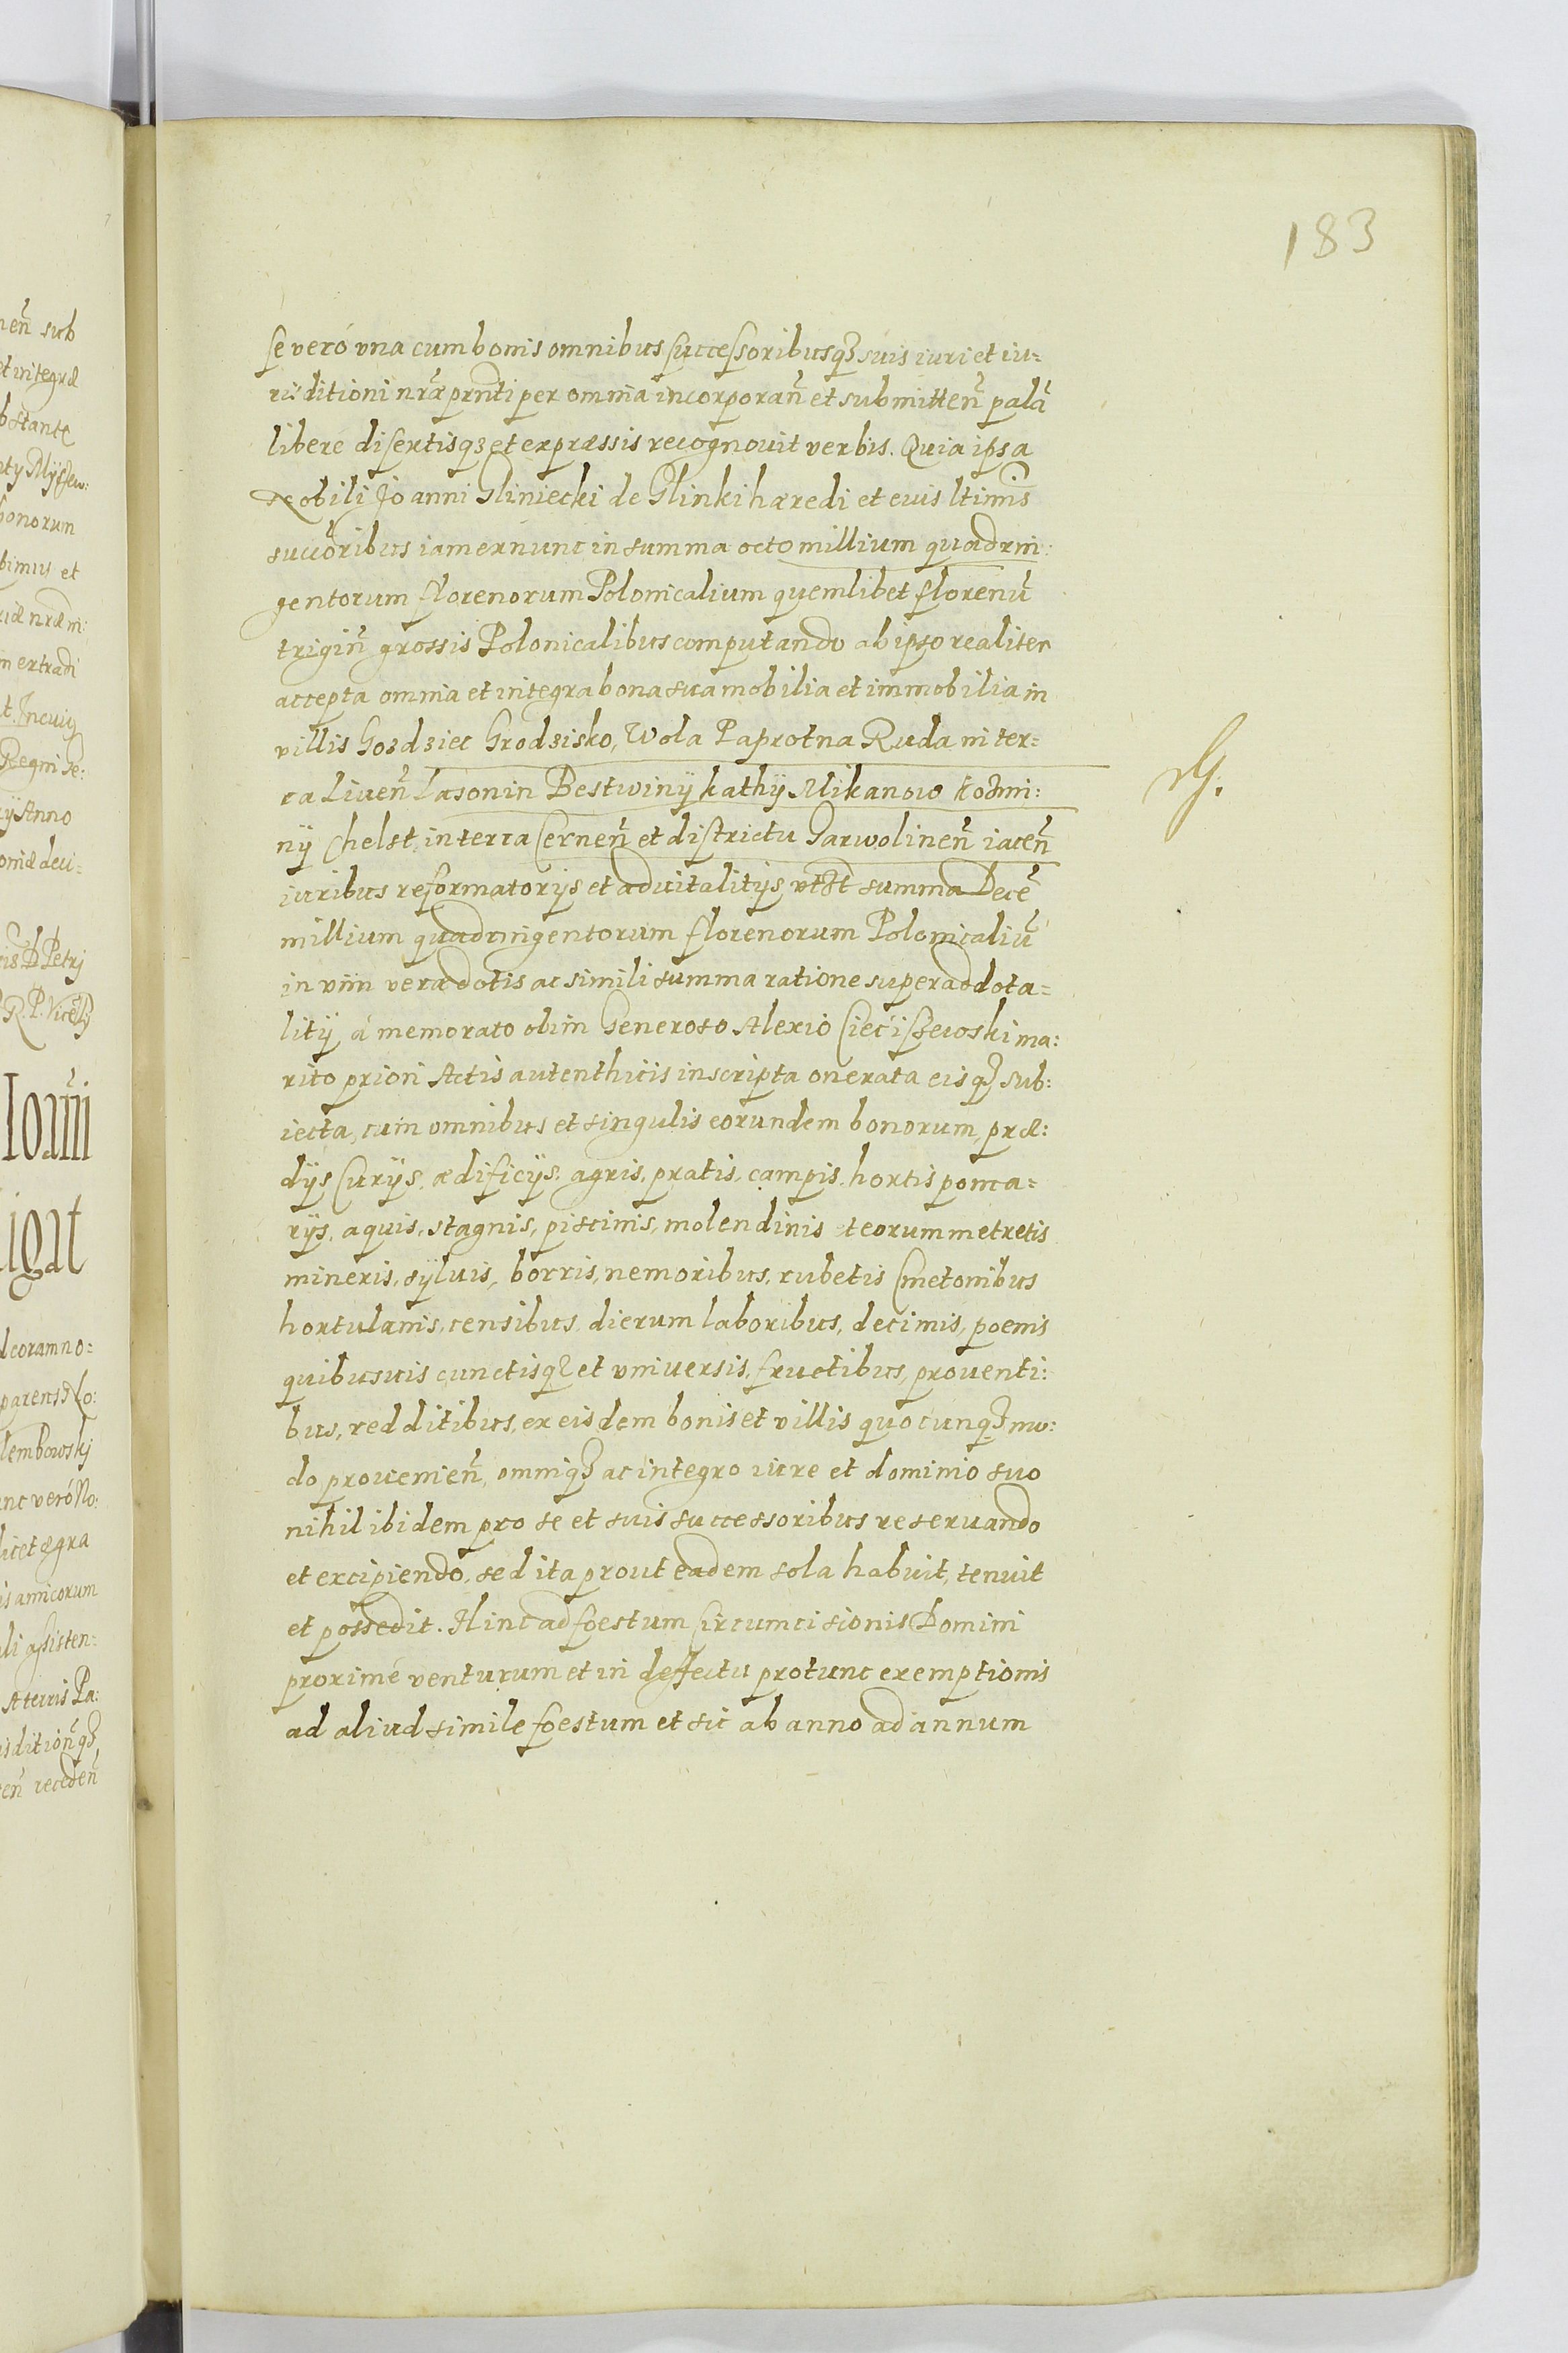 183
se verò vna cum bonis omnibus successoribusq₃ suis iuri et iu=
risditioni nr̃æ prn̄ti per omnia incorporan̄ et submitten̄ palā
libere disertisq₃ et expræssis recognouit verbis. Quia ipsa
Nobili Joanni Gliniecki de Glinki hæredi et euis ltimis̄
succōribus iam ex nunc in summa octo millium quadrin:
gentorum florenorum Polonicalium quemlibet florenū
trigin̄ grossis Polonicalibus computando ab ipso realiter
accepta omnia et integra bona sua mobilia et immobilia in
villis Gozdziec Grodzisko, Wola Paprotna Ruda in ter=
ra Liuen̄ Lasonin Bestwiny kathy Mikanow
ny Chelst, in terra Cernen̄ et districtu Garwolinen̄ iacen̄
iuribus reformatorijs et aduitalitijs summa Decē
millium quadringentorum florenorum Polonicaliū
in vim veræ dotis ac simili summa ratione superaddota=
litij á memorato olim Generoso Alexio Cieciszewski ma:
rito priori Actis autenthicis inscripta onerata eisq₃ sub:
iecta, cum omnibus et singulis eorundem bonorum, præ:
dijs Curijs, ædificijs, agris, pratis, campis, hortis poma=
rijs, aquis, stagnis, piscinis, molendinis et eorum metretis
mineris, syluis, borris, nemoribus, rubetis Cmetonibus
hortulanis, censibus, dierum laboribus, decimis, poenis
quibusuis cunctisq₃ et vniuersis, fructibus, prouenti:
bus, redditibus, ex eisdem bonis et villis quocunq₃ mo:
do prouenien̄, omniq₃ ac integro iure et dominio suo
nihil ibidem pro se et suis successoribus reseruando
et excipiendo, sed ita prout eadem sola habuit, tenuit
et possedit. Hinc ad foestum Circumcisionis Domini
proximè venturum et in deffectu protunc exemptionis
ad aliud simile foestum et sic ab anno ad annum